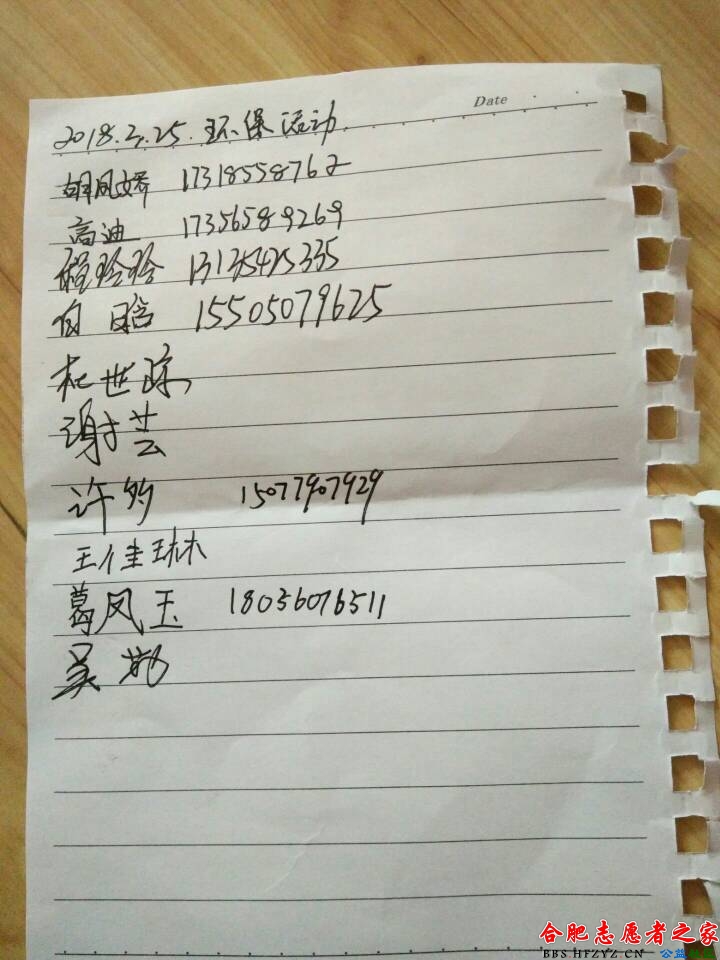 Date
2018.2.25.环保活动
胡凤娇 17318558762
高迪 17356589269
程玲玲 13135425335
向晗 15505079625
杜世琼
谢芸
许多 15077907929
王佳琳
葛凤玉 18056076511
吴
合肥志愿者之家
BBS.HFZYZ.CN 公益